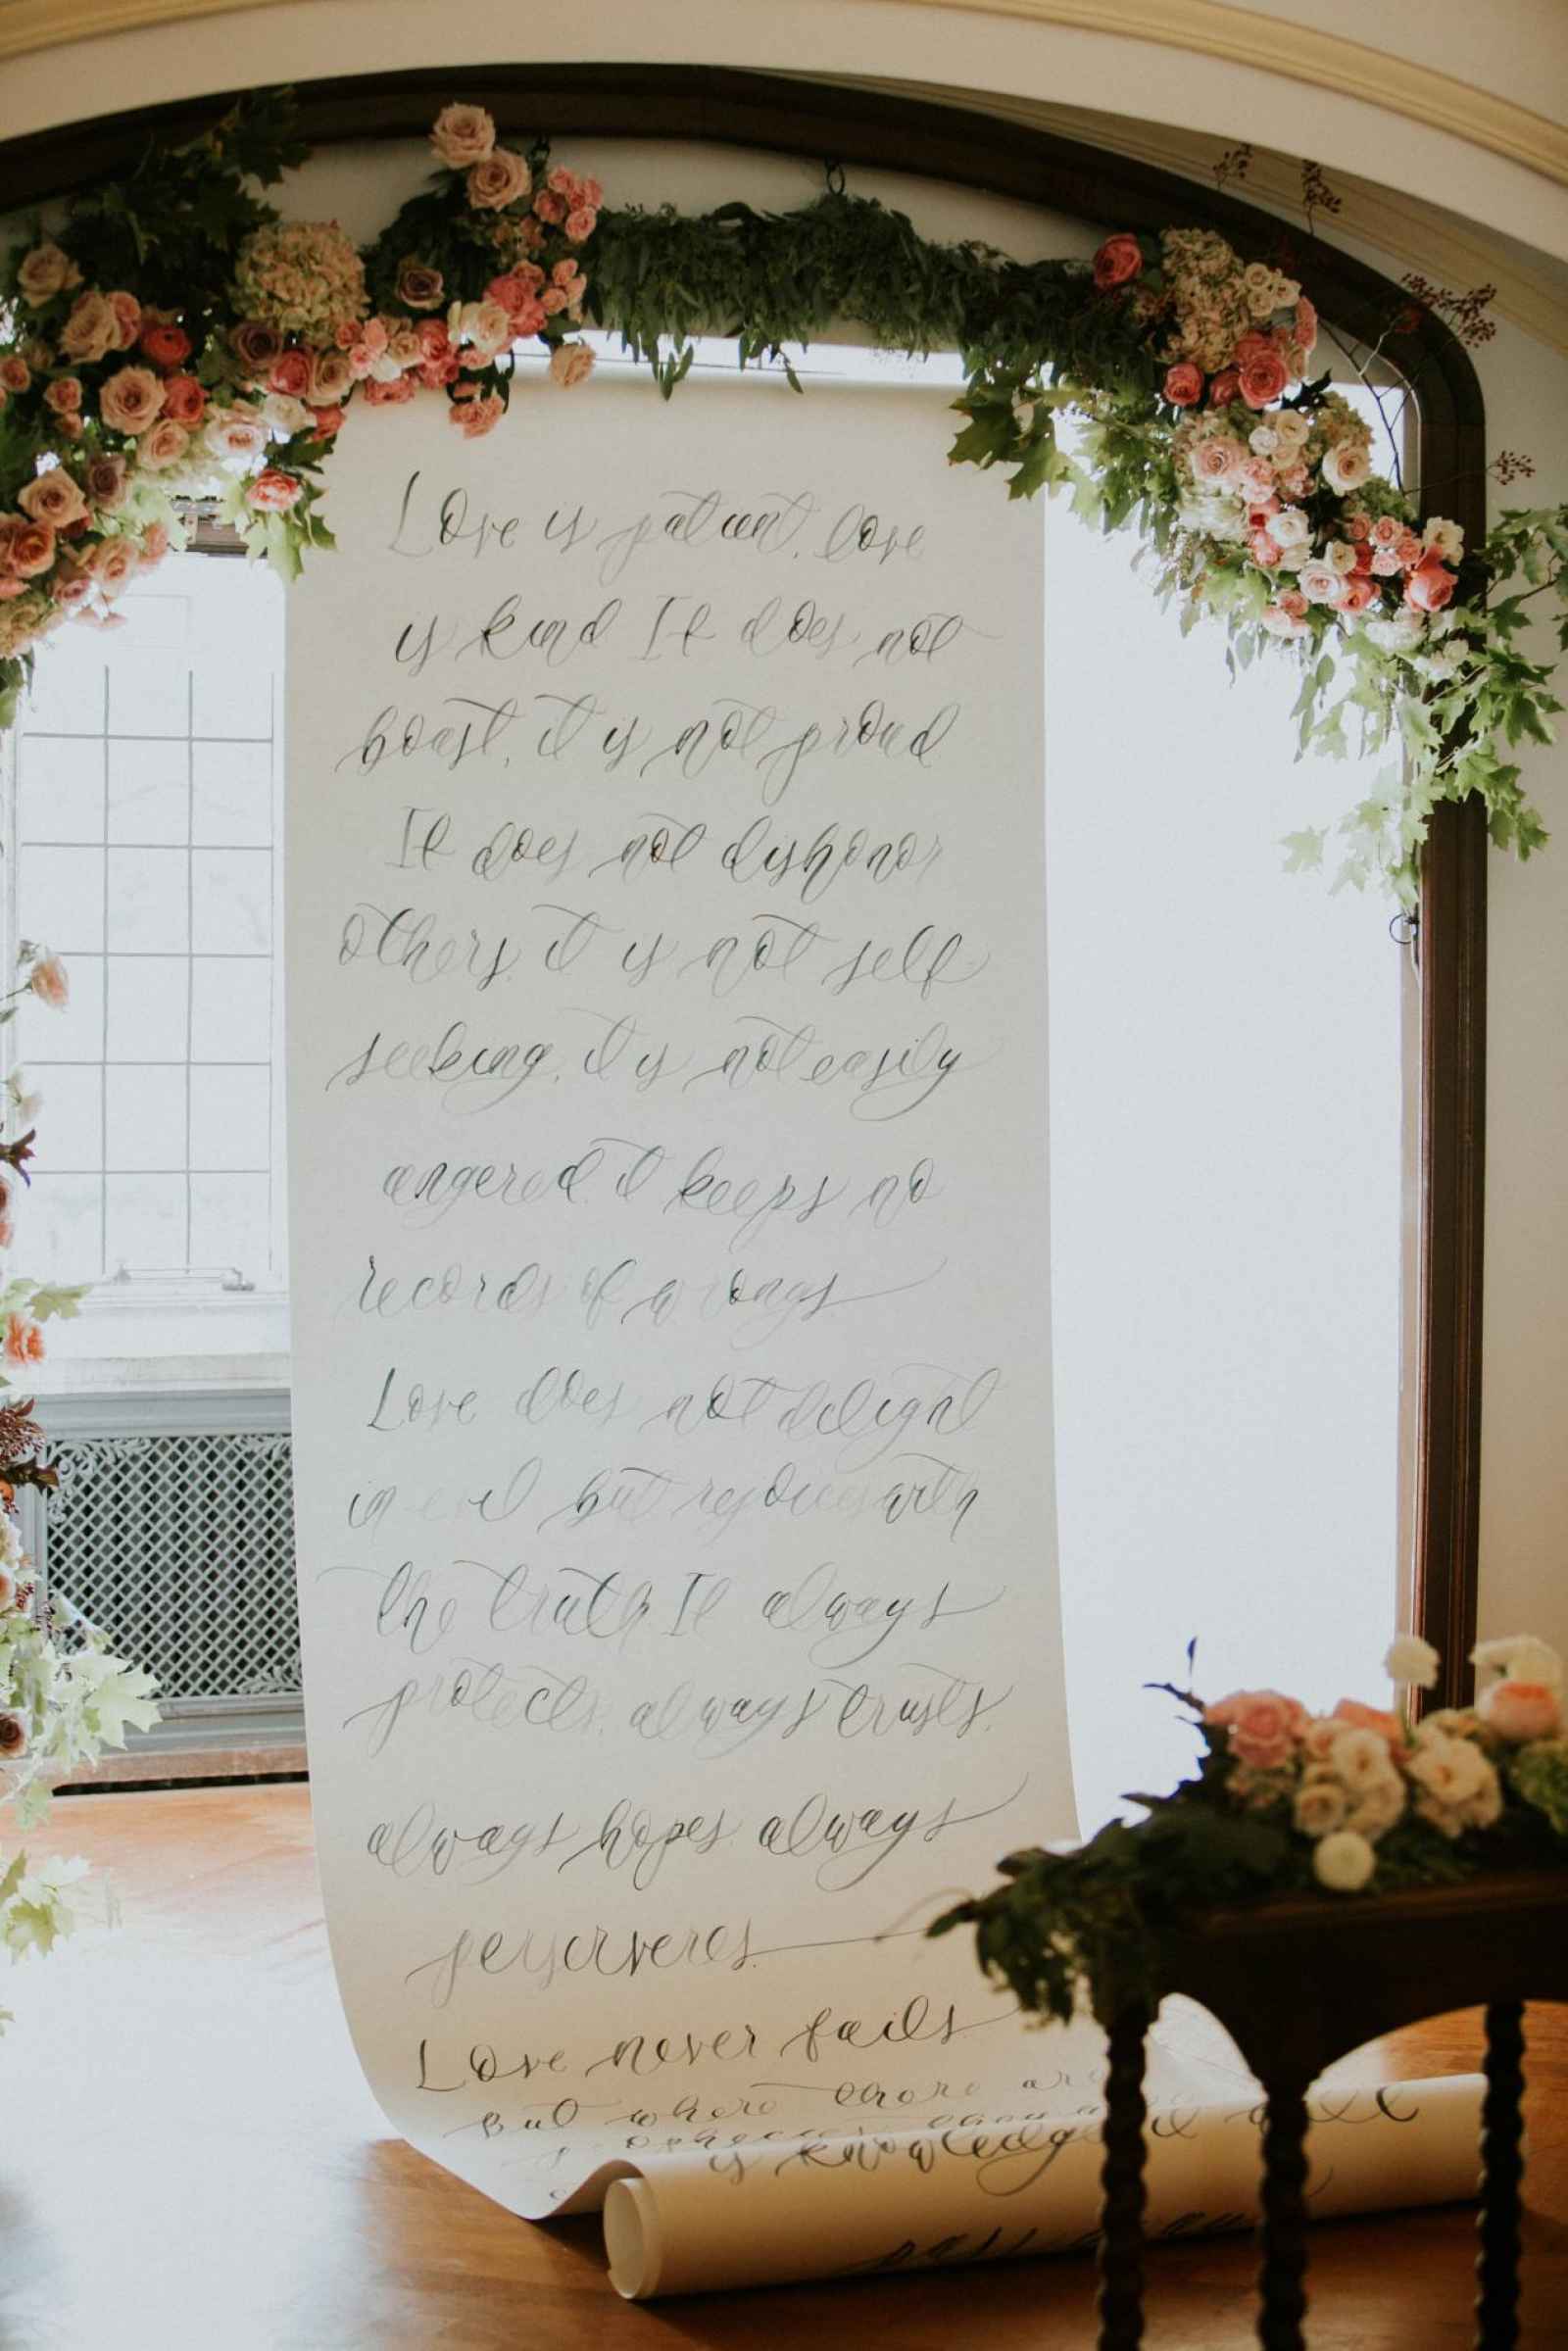 Love is patient, love
is kind It does not
boast, it is not proud.
It does not dishonor
others, it is not self
seeking, it is not easily
angered, it keeps no
records of wrongs
Love does not delight
in evil but rejoices with
the truth. It always
protects, always trusts,
always hopes, always
perserveres.
Love never fails
But where there are
is knowledge it will
pass away